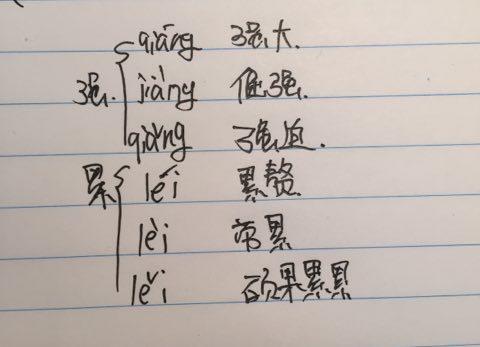 qiáng 强大.
强. jiàng 倔强.
qiǎng 强迫.
累 léi 累赘
lèi 带累
lěi 硕果累累